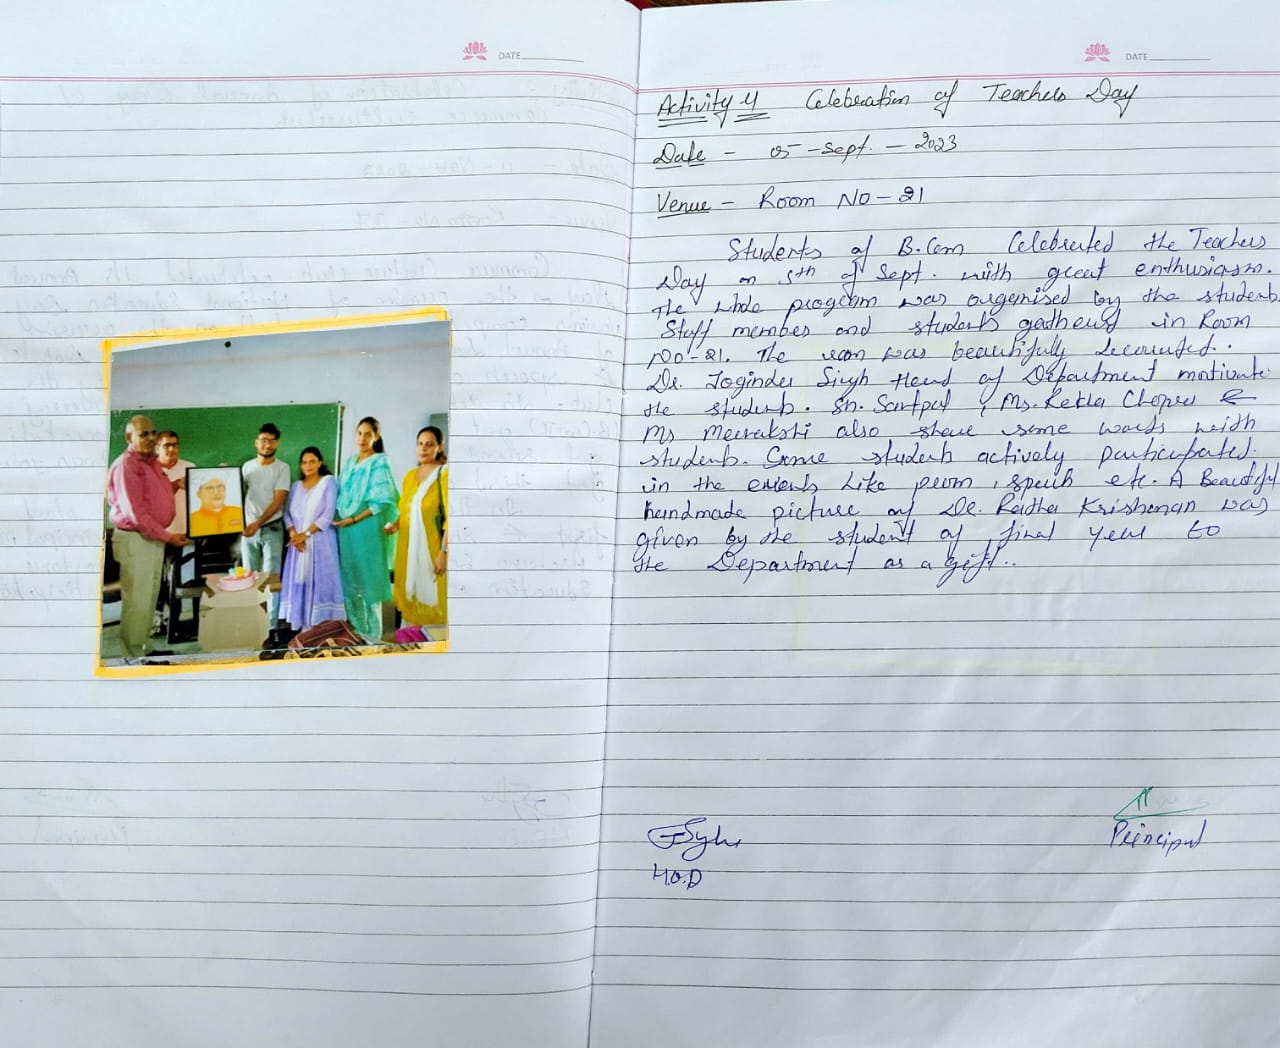 DATE
DATE
Activity 4 Celebration of Teachers Day
Date - 05 - Sept. - 2023
Venue - Room No - 21
Students of B.Com Celebrated the Teachers
Day on 5th of Sept. with great enthusiasm.
The whole program was organised by the students.
Staff member and students gathered in Room
No-21. The room was beautifully decorated..
Dr. Joginder Singh Head of Department motivate
the student. Sh. Satpal, Ms. Rekha Chopra &
Ms Meenakshi also share some words with
students. Some student actively participated.
in the events like poem, speech etc. A Beautiful
handmade picture of Dr. Radha Krishanan was
given by the student of final year to
the Department as a gift..
H.O.D
Principal